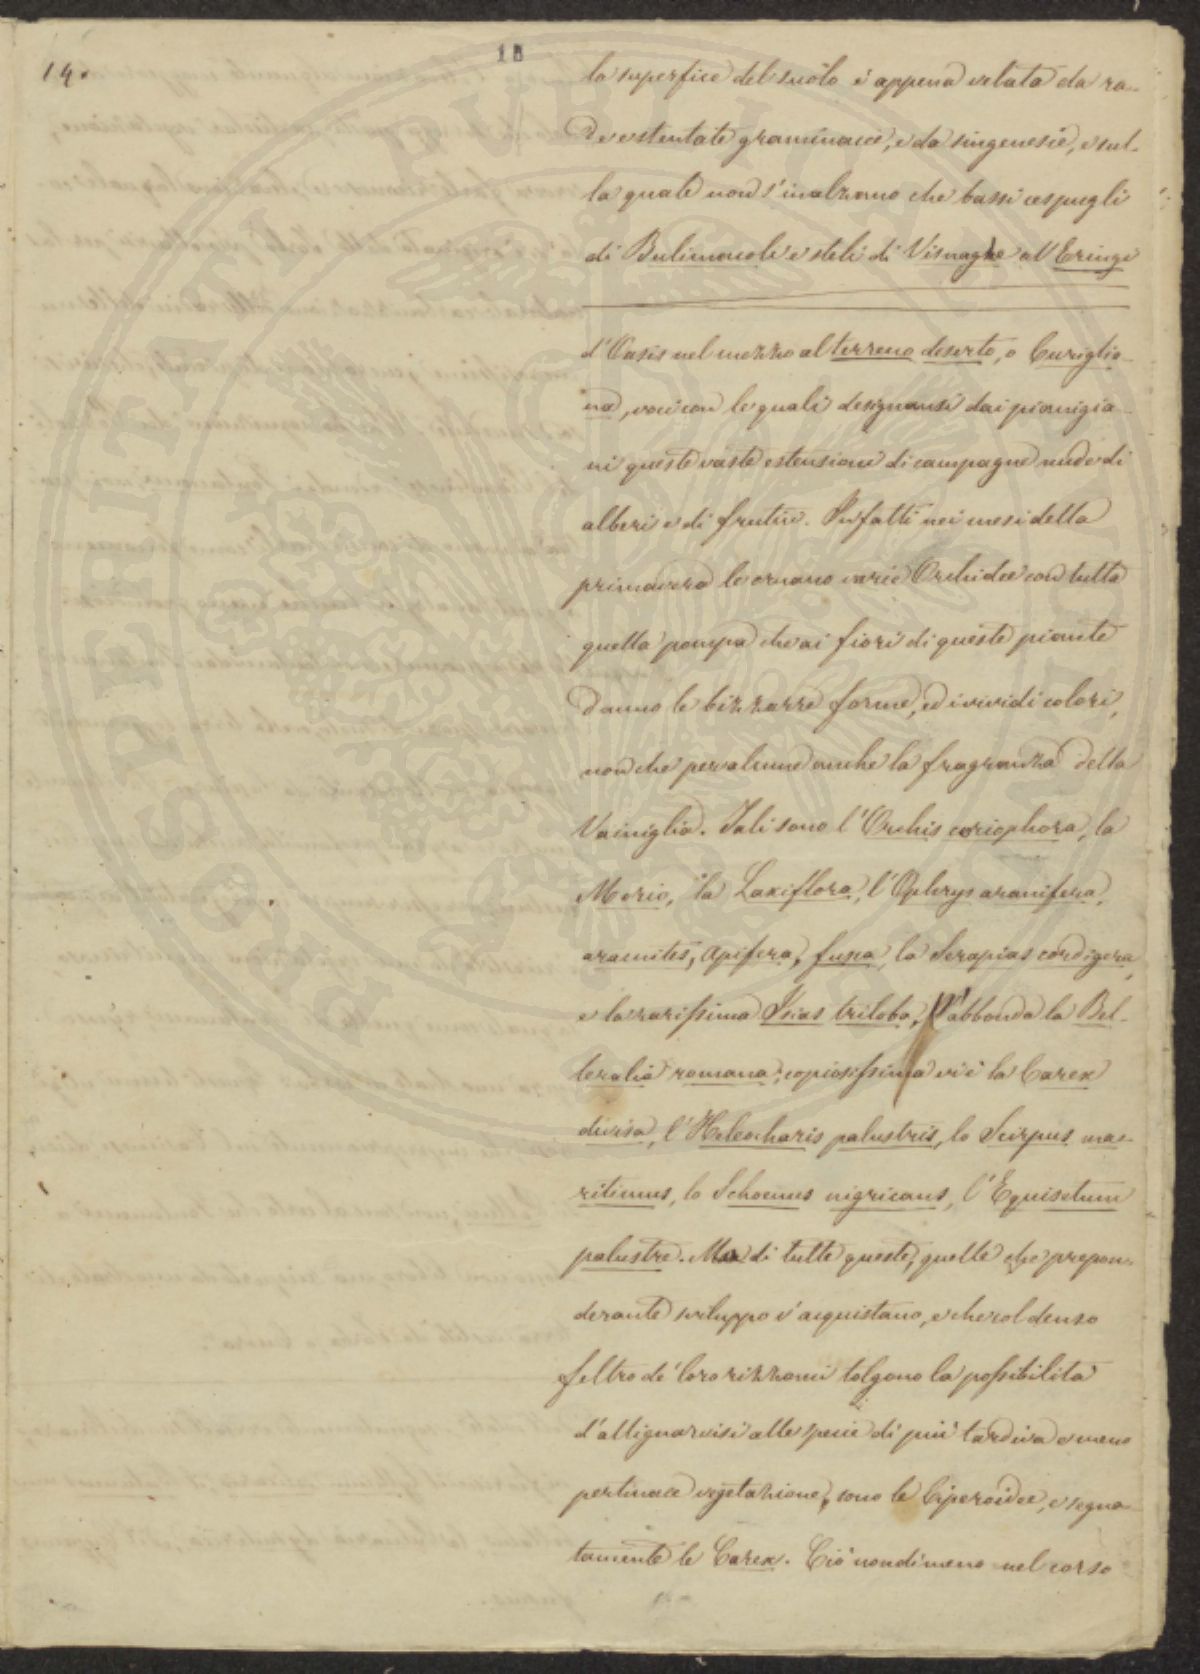 14.
18
la superfice del suolo è appena velata da ra-
de e stentate graminacee, e da singenesie, e sul-
la quale non s'inalzano che bassi cespugli
di Bulimacole e steli di Visnaghe al Eringi
d'Oasis nel mezzo al terreno deserto, o Curiglio-
na, voci con le quali designansi dai pianigia-
ni queste vaste estensioni di campagne nude di
alberi e di frutici. Infatti nei mesi della
primavera le ornano varie Orchidee con tutta
quella pompa che ai fiori di queste piante
danno le bizzarre forme, ed i vividi colori,
non che per alcune anche la fragranza della
Vainiglia. Tali sono l'Orchis coriophora, la
Morio, la Laxiflora, l'Ophrys aranifera,
aracnites, apifera, fusca, la Serapias cordigera,
e la rarissima Isias triloba, V'abbonda la Bel-
leralia romana; copiosissima vi è la Carex
divisa, l'Heleocharis palustris, lo Scirpus ma-
ritimus, lo Schoenus nigricans, l'Equisetum
palustre. Ma di tutte queste, quelle che prepon-
derante sviluppo v'acquistano, e che col denso
feltro de' loro rizzomi tolgono la possibilità
d'allignarvisi alle specie di più tardiva e meno
pertinace vegetazione, sono le Ciperoidee, e segna-
tamente le Carex. Ciò nondimeno nel corso